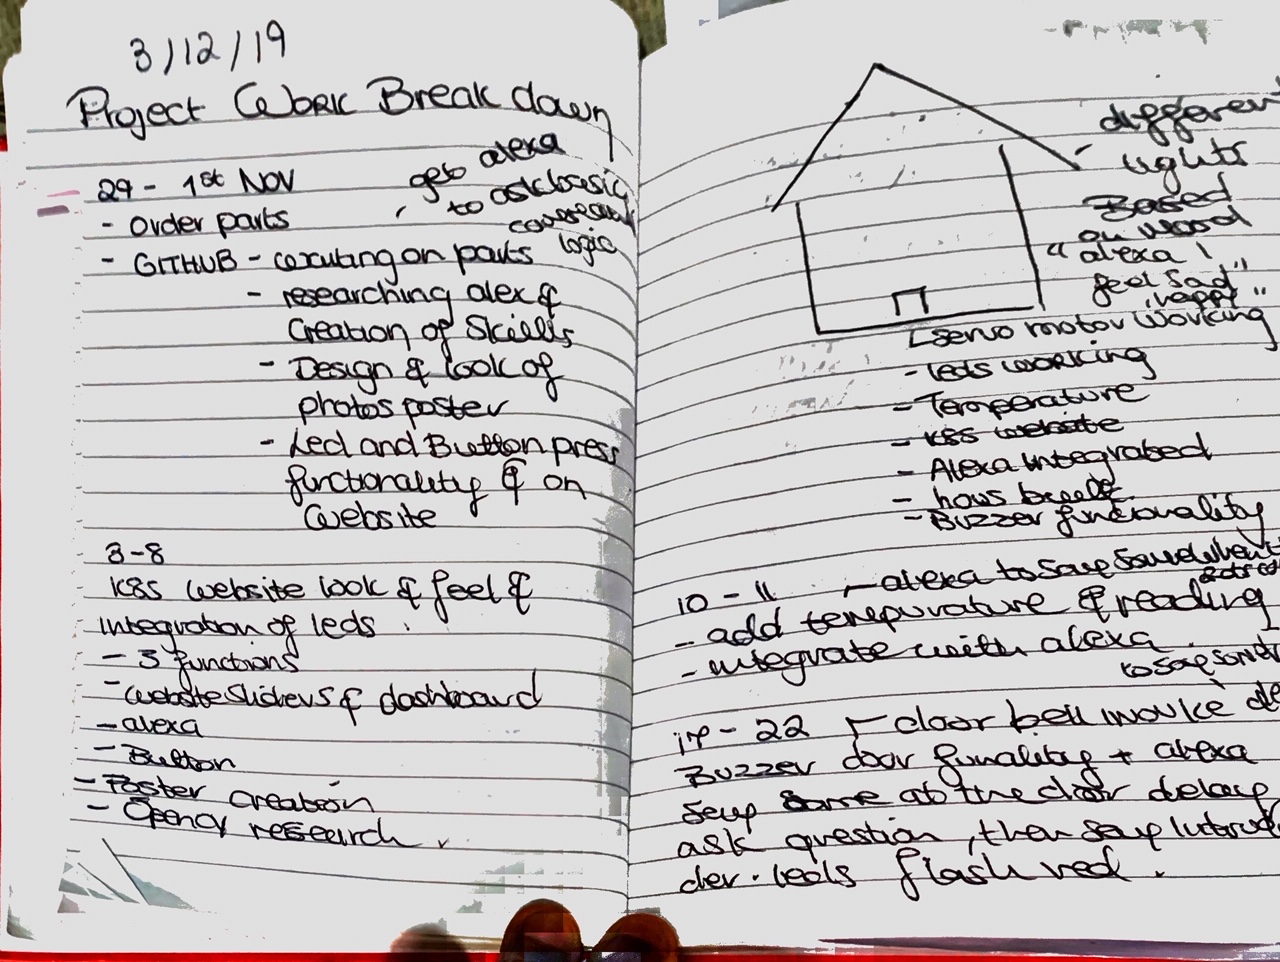 3/12/19
Project Work Break down
29 - 1st NOV
get alexa
to ask basic
logic
- Order parts
- GITHUB - on parts
- researching alex &
Creation of Skills
- Design & look of
photos poster
- Led and Button press
functionality & on
Website
3-8
K8S website look & feel &
integration of leds.
- 3 functions
- website sliders & dashboard
- alexa
- Button
- Poster creation
- Opencv research.
different
lights
Based
on mood
"alexa I
feel sad"
"happy"
- servo motor working
- leds working
- Temperature
- K8S website
- Alexa integrated
- Buzzer funcionality
10 - 11 - alexa to say
- add & reading
- integrate with alexa
to say
17 - 22 - door bell
Buzzer door + alexa
say some at the door delay
ask question, then say
der. leds flash red.